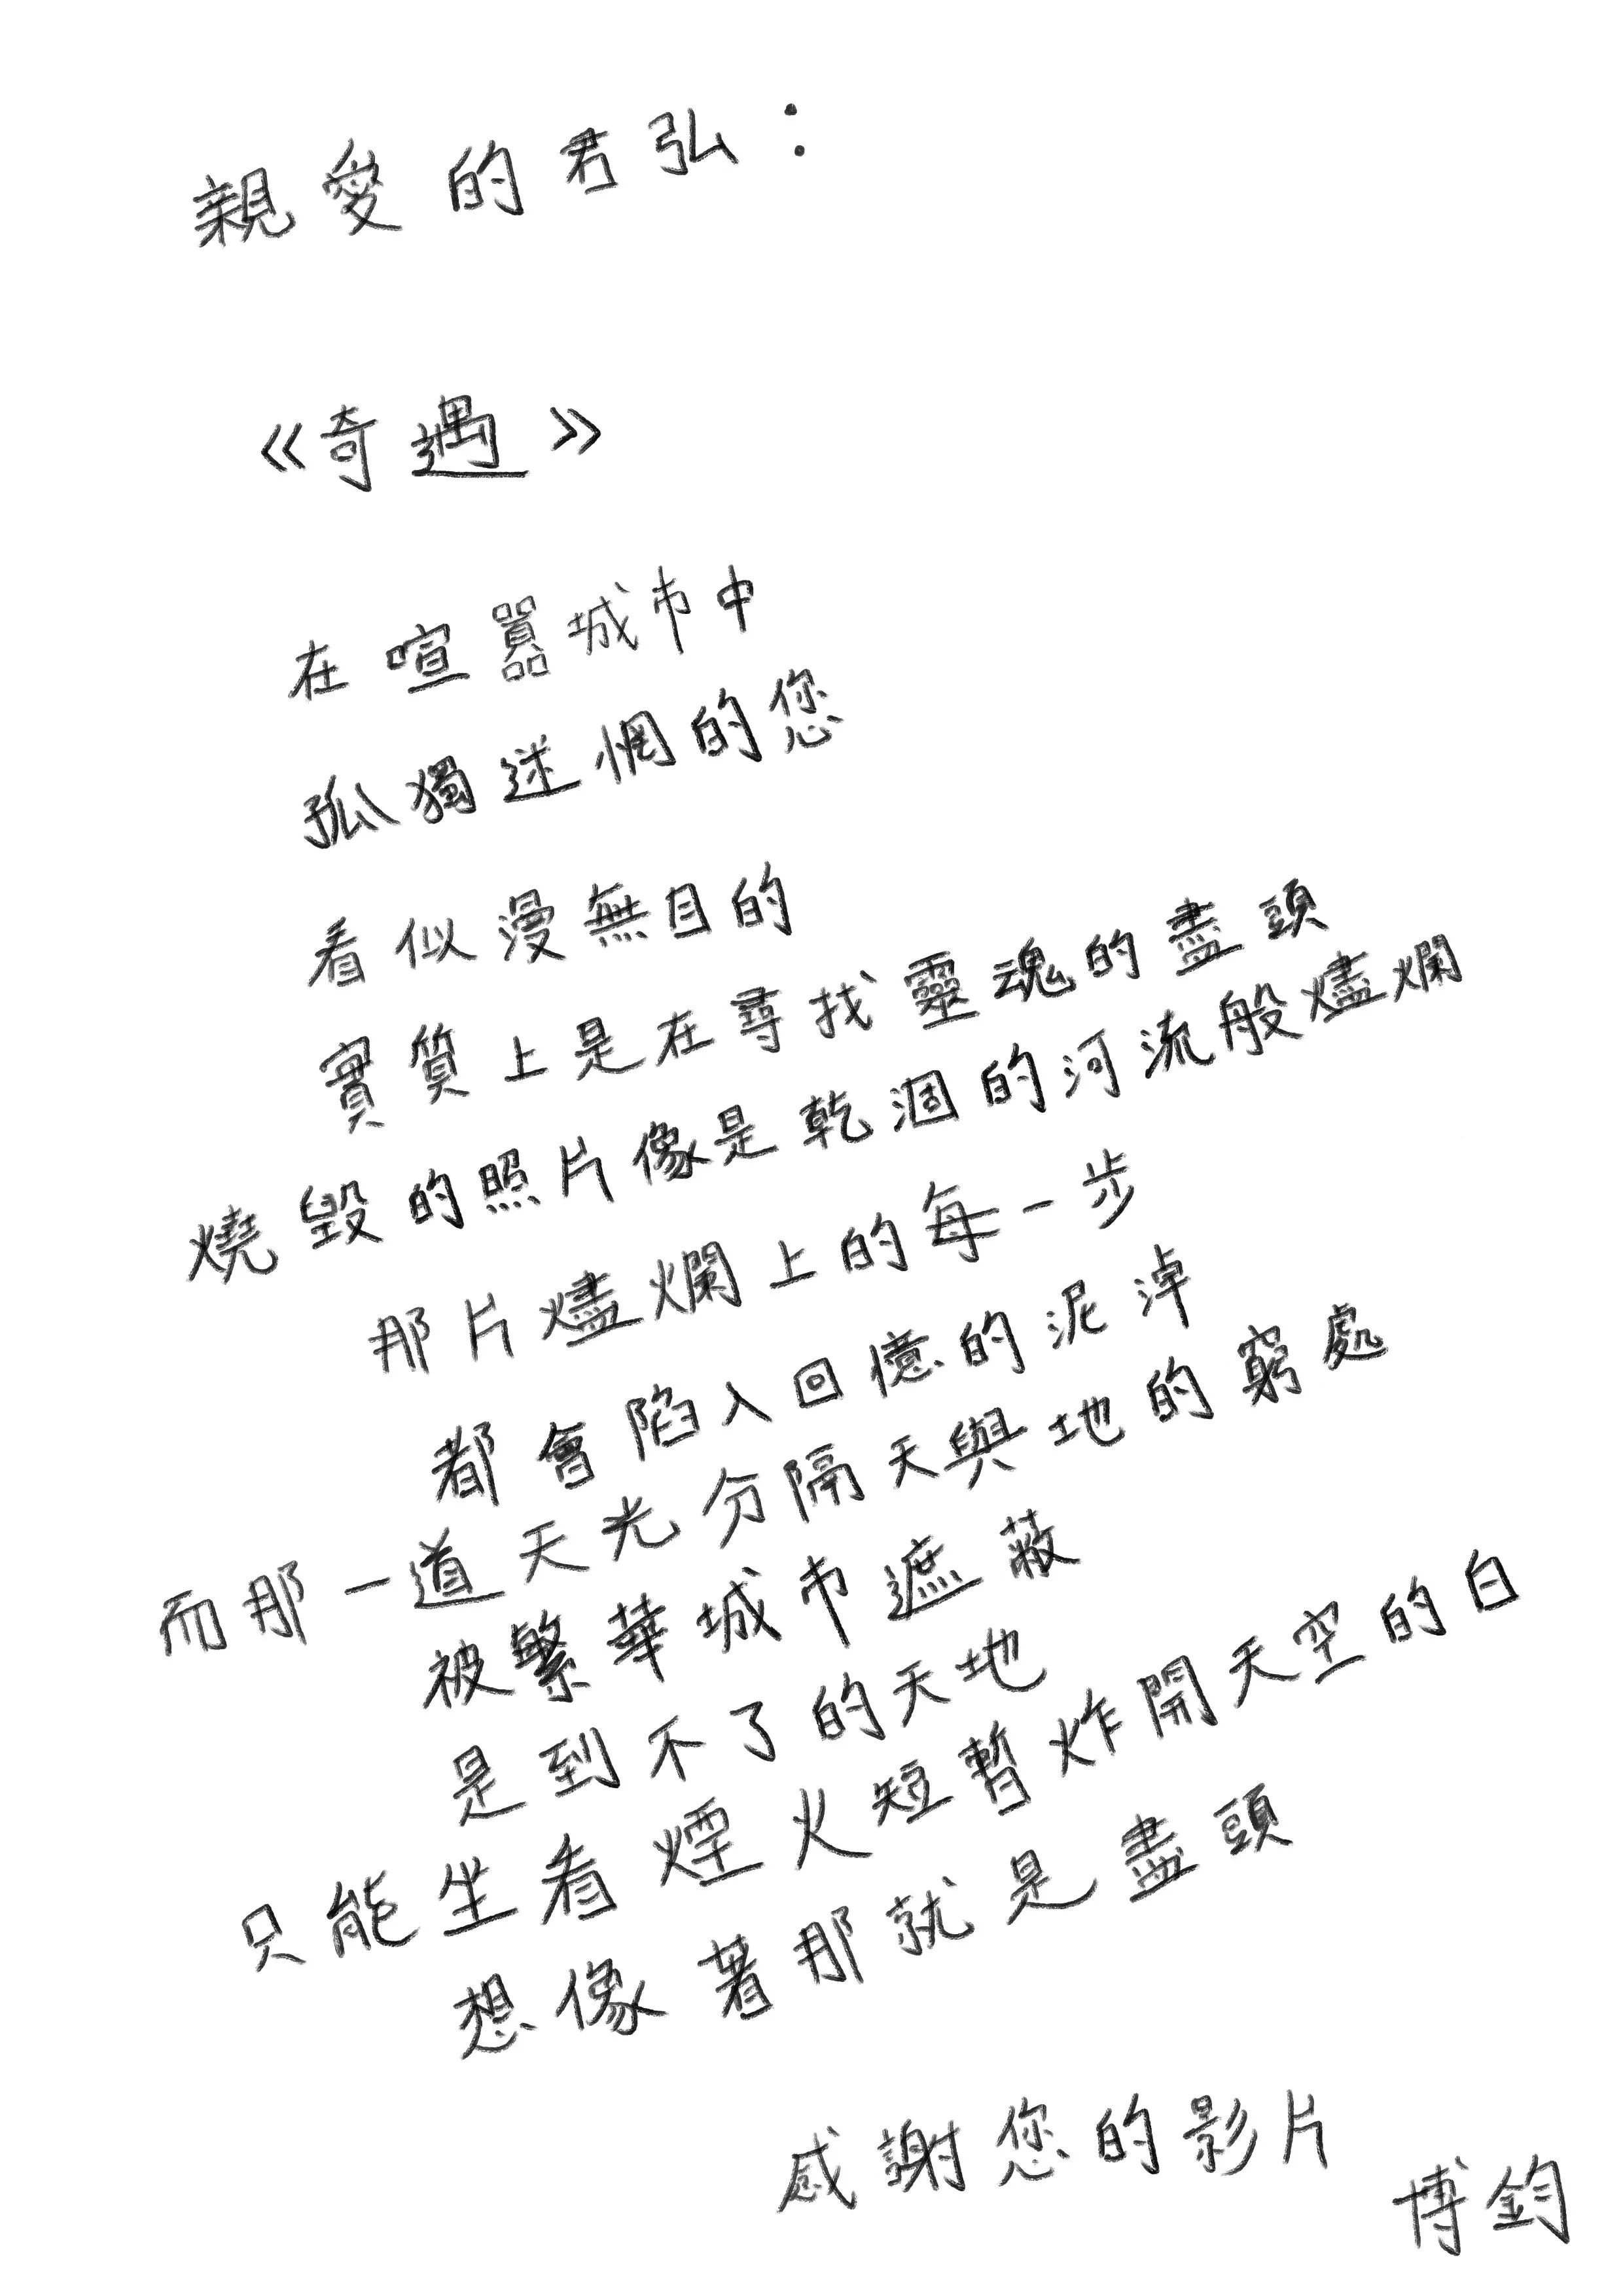 親愛的君弘：
《奇遇》
在喧囂城市中
孤獨迷惘的您
看似漫無目的
實質上是在尋找靈魂的盡頭
燒毀的照片像是乾涸的河流般燼爛
那片燼爛上的每一步
都會陷入回憶的泥淖
而那一道天光分隔天與地的窮處
被繁華城市遮蔽
是到不了的天地
只能坐看煙火短暫炸開天空的白
想像著那就是盡頭
感謝您的影片
博鈞